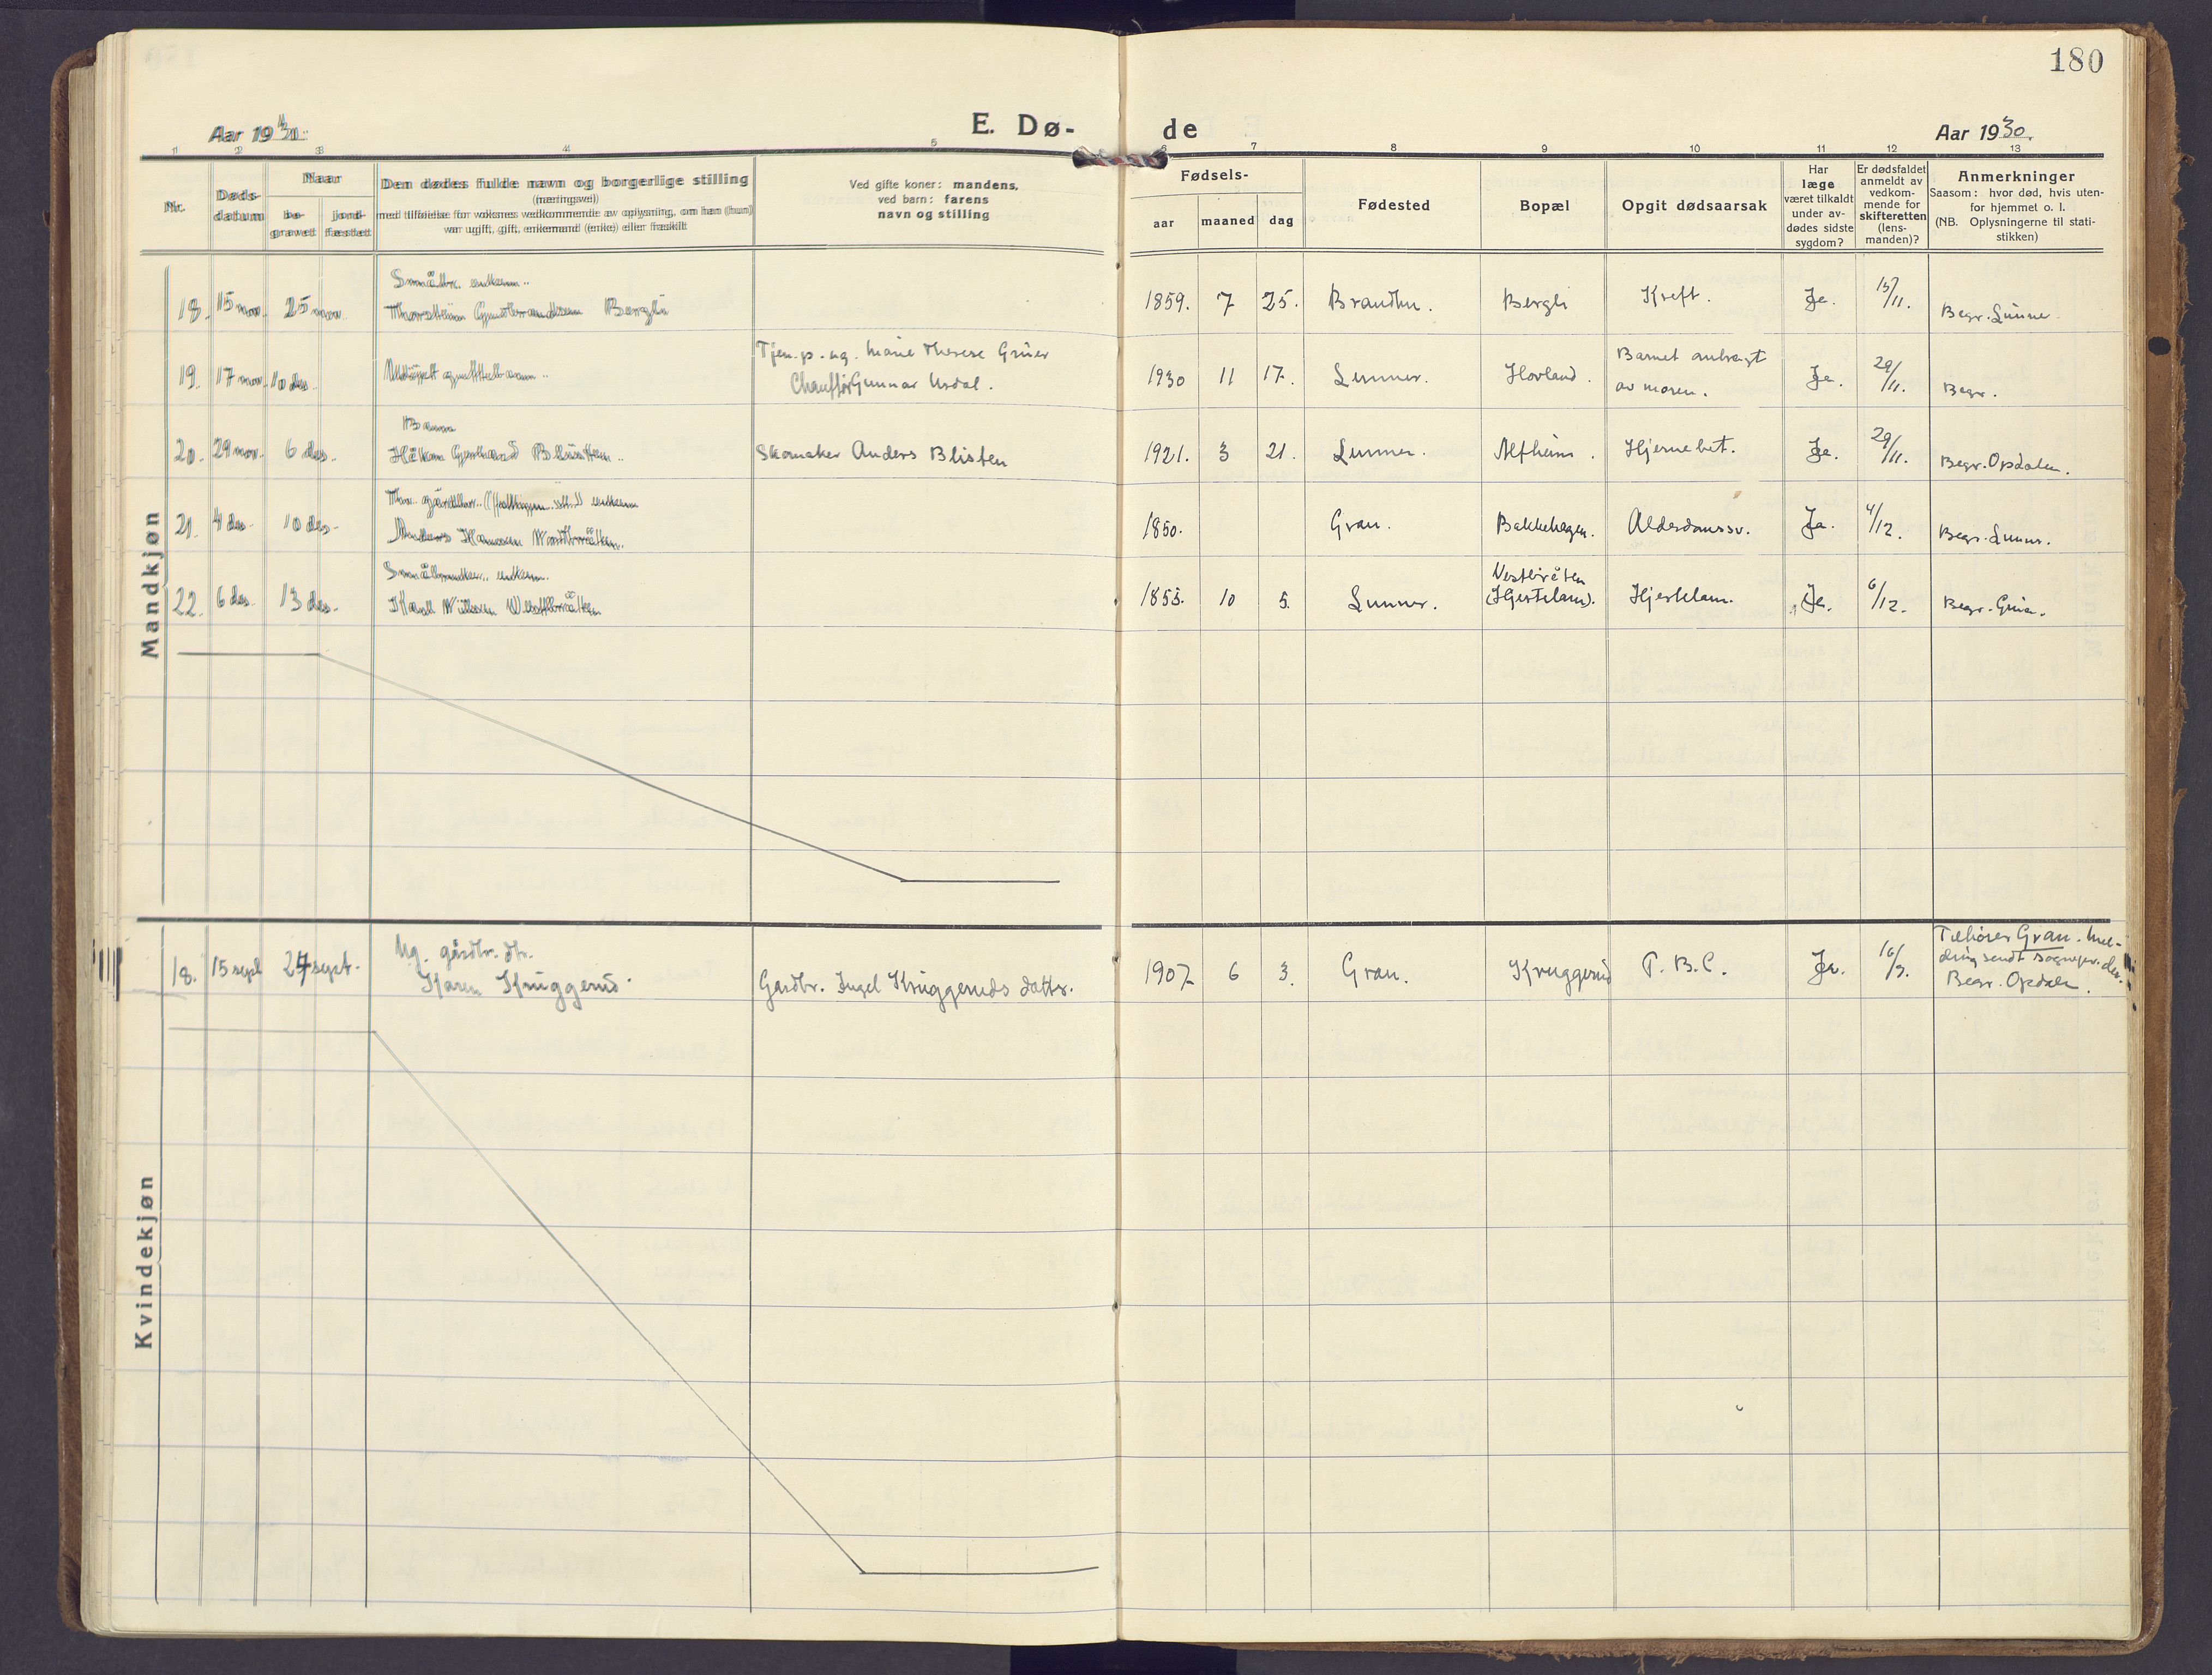 180
E. Dø-
de
Aar 1930.
Aar 19
1 2 3 4 5 6 7 8 9 10 11 12 13
Nr.
Døds-
datum
Naar
be-
gravet
jord-
fæstet
Den dødes fulde navn og borgerlige stilling
(næringsvei)
med tilføielse for voksnes vedkommende av oplysning, om han (hun)
var ugift, gift, enkemand (enke) eller fraskilt
Ved gifte koner: mandens,
ved barn: farens
navn og stilling
Fødsels-
aar
maaned
dag
Fødested
Bopæl
Opgit dødsaarsak
Har
læge
været tilkaldt
under av-
dødes sidste
sygdom?
Er dødsfaldet
anmeldt av
vedkom-
mende for
skifteretten
(lens-
manden)?
Anmerkninger
Saasom: hvor død, hvis uten-
for hjemmet o. l.
(NB. Oplysningerne til stati-
stikken)
Mandkjøn
Småbr. enkem.
18. 15 nov. 25 nov. Thorstein Bergli 1859. 7 25. Brandbu. Bergli Kreft. Ja. 15/11. Begr. Lunner
Tjen.p. ug. Marie Therese Grüer
19. 17 nov. 10 des. Udöpt guttebarn. Chauffør Gunnar Usdal. 1930 11 17. Lunner. Hovland. Barnet ombragt
av moren. Ja. 29/11. Begr.
Barn
20. 29 nov. 6 des. Håkon Gerhard Blisten. Skomaker Anders Blisten 1921. 3 21. Lunner. Alfheim. Hjernebet. Ja. 29/11. Begr. Opdalen.
enkem
21. 4 des. 10 des. Anders Hansen 1850. Gran. Bakkehagen. Alderdomssv. Ja. 4/12. Begr. Lunner.
Småbruker. enkem.
22. 6 des. 13 des. Karl Nilsen Vestbråten 1855. 10 5. Lunner. Vestbråten
(Hjertelam). Hjertelam. Ja. 6/12. Begr. Grua.
Kvindekjøn
Ug. gårdbr. dtr.
18. 15 sept 24 sept. Karen Kruggerud. Gardbr. Ingel Kruggeruds datter. 1907 6 3. Gran. Kruggerud T.B.C. Ja. 16/9. Tilhører Gran. Mel-
ding sendt sognepr. der.
Begr. Opdalen.